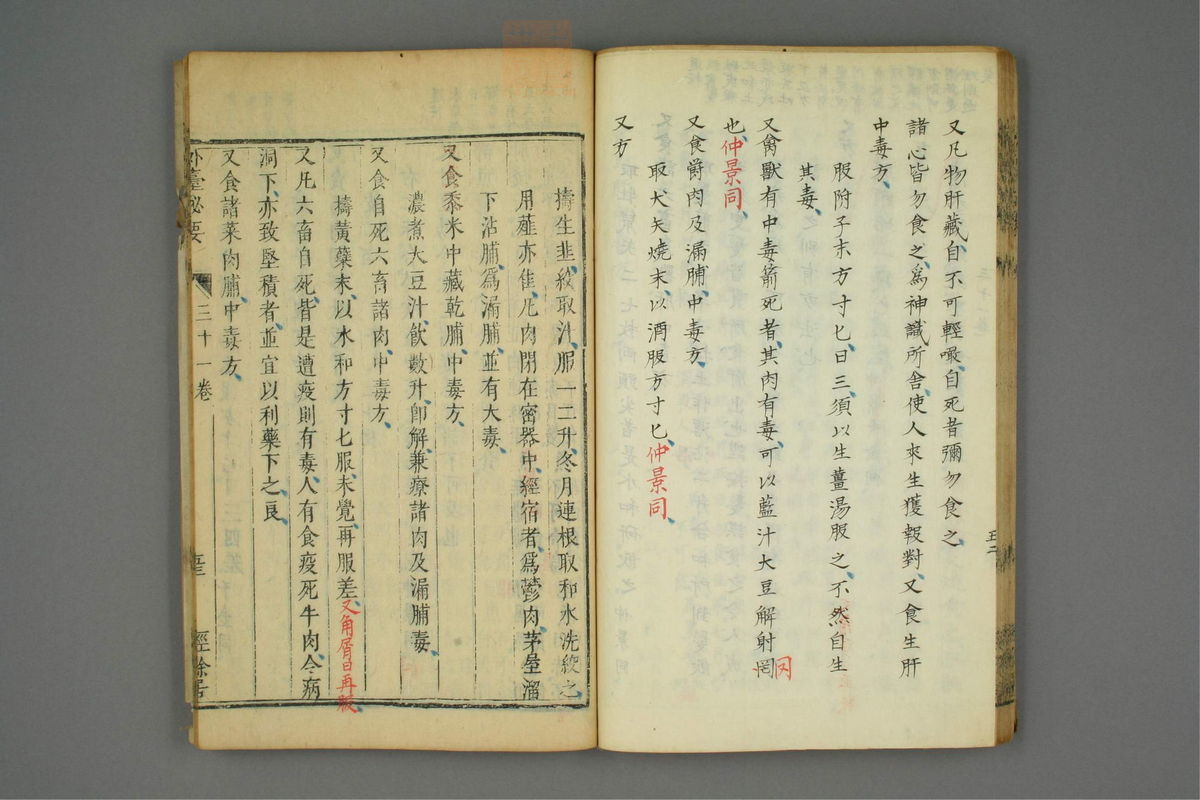 又凡物肝藏、自不可輕噉、自死者彌勿食之、
諸心皆勿食之、爲神識所舍、使人來生獲報對、又食生肝
中毒方、
服附子末方寸匕、日三、須以生薑湯服之、不然自生
其毒、
又禽獸有中毒箭死者、其肉有毒、可以藍汁大豆解射罔
也、仲景同、
又食爵肉及漏脯、中毒方、
取犬矢燒末、以酒服方寸匕、仲景同、
又方
擣生韭、絞取汁、服一二升、冬月連根取和水洗絞之、
用薤亦佳、凡肉閉在密器中、經宿者、爲鬱肉、茅屋溜
下沾脯、爲漏脯、並有大毒、
又食黍米中藏乾脯、中毒方、
濃煮大豆汁、飲數升、卽解、兼療諸肉及漏脯毒、
又食自死六畜諸肉、中毒方、
擣黃蘗末、以水和方寸匕服、未覺、再服差、又角屑日再服、
又凡六畜自死、皆是遭疫、則有毒、人有食疫死牛肉、令病
洞下、亦致堅積者、並宜以利藥下之、良、
又食諸菜肉脯、中毒方、
外臺祕要 三十一卷 經餘居